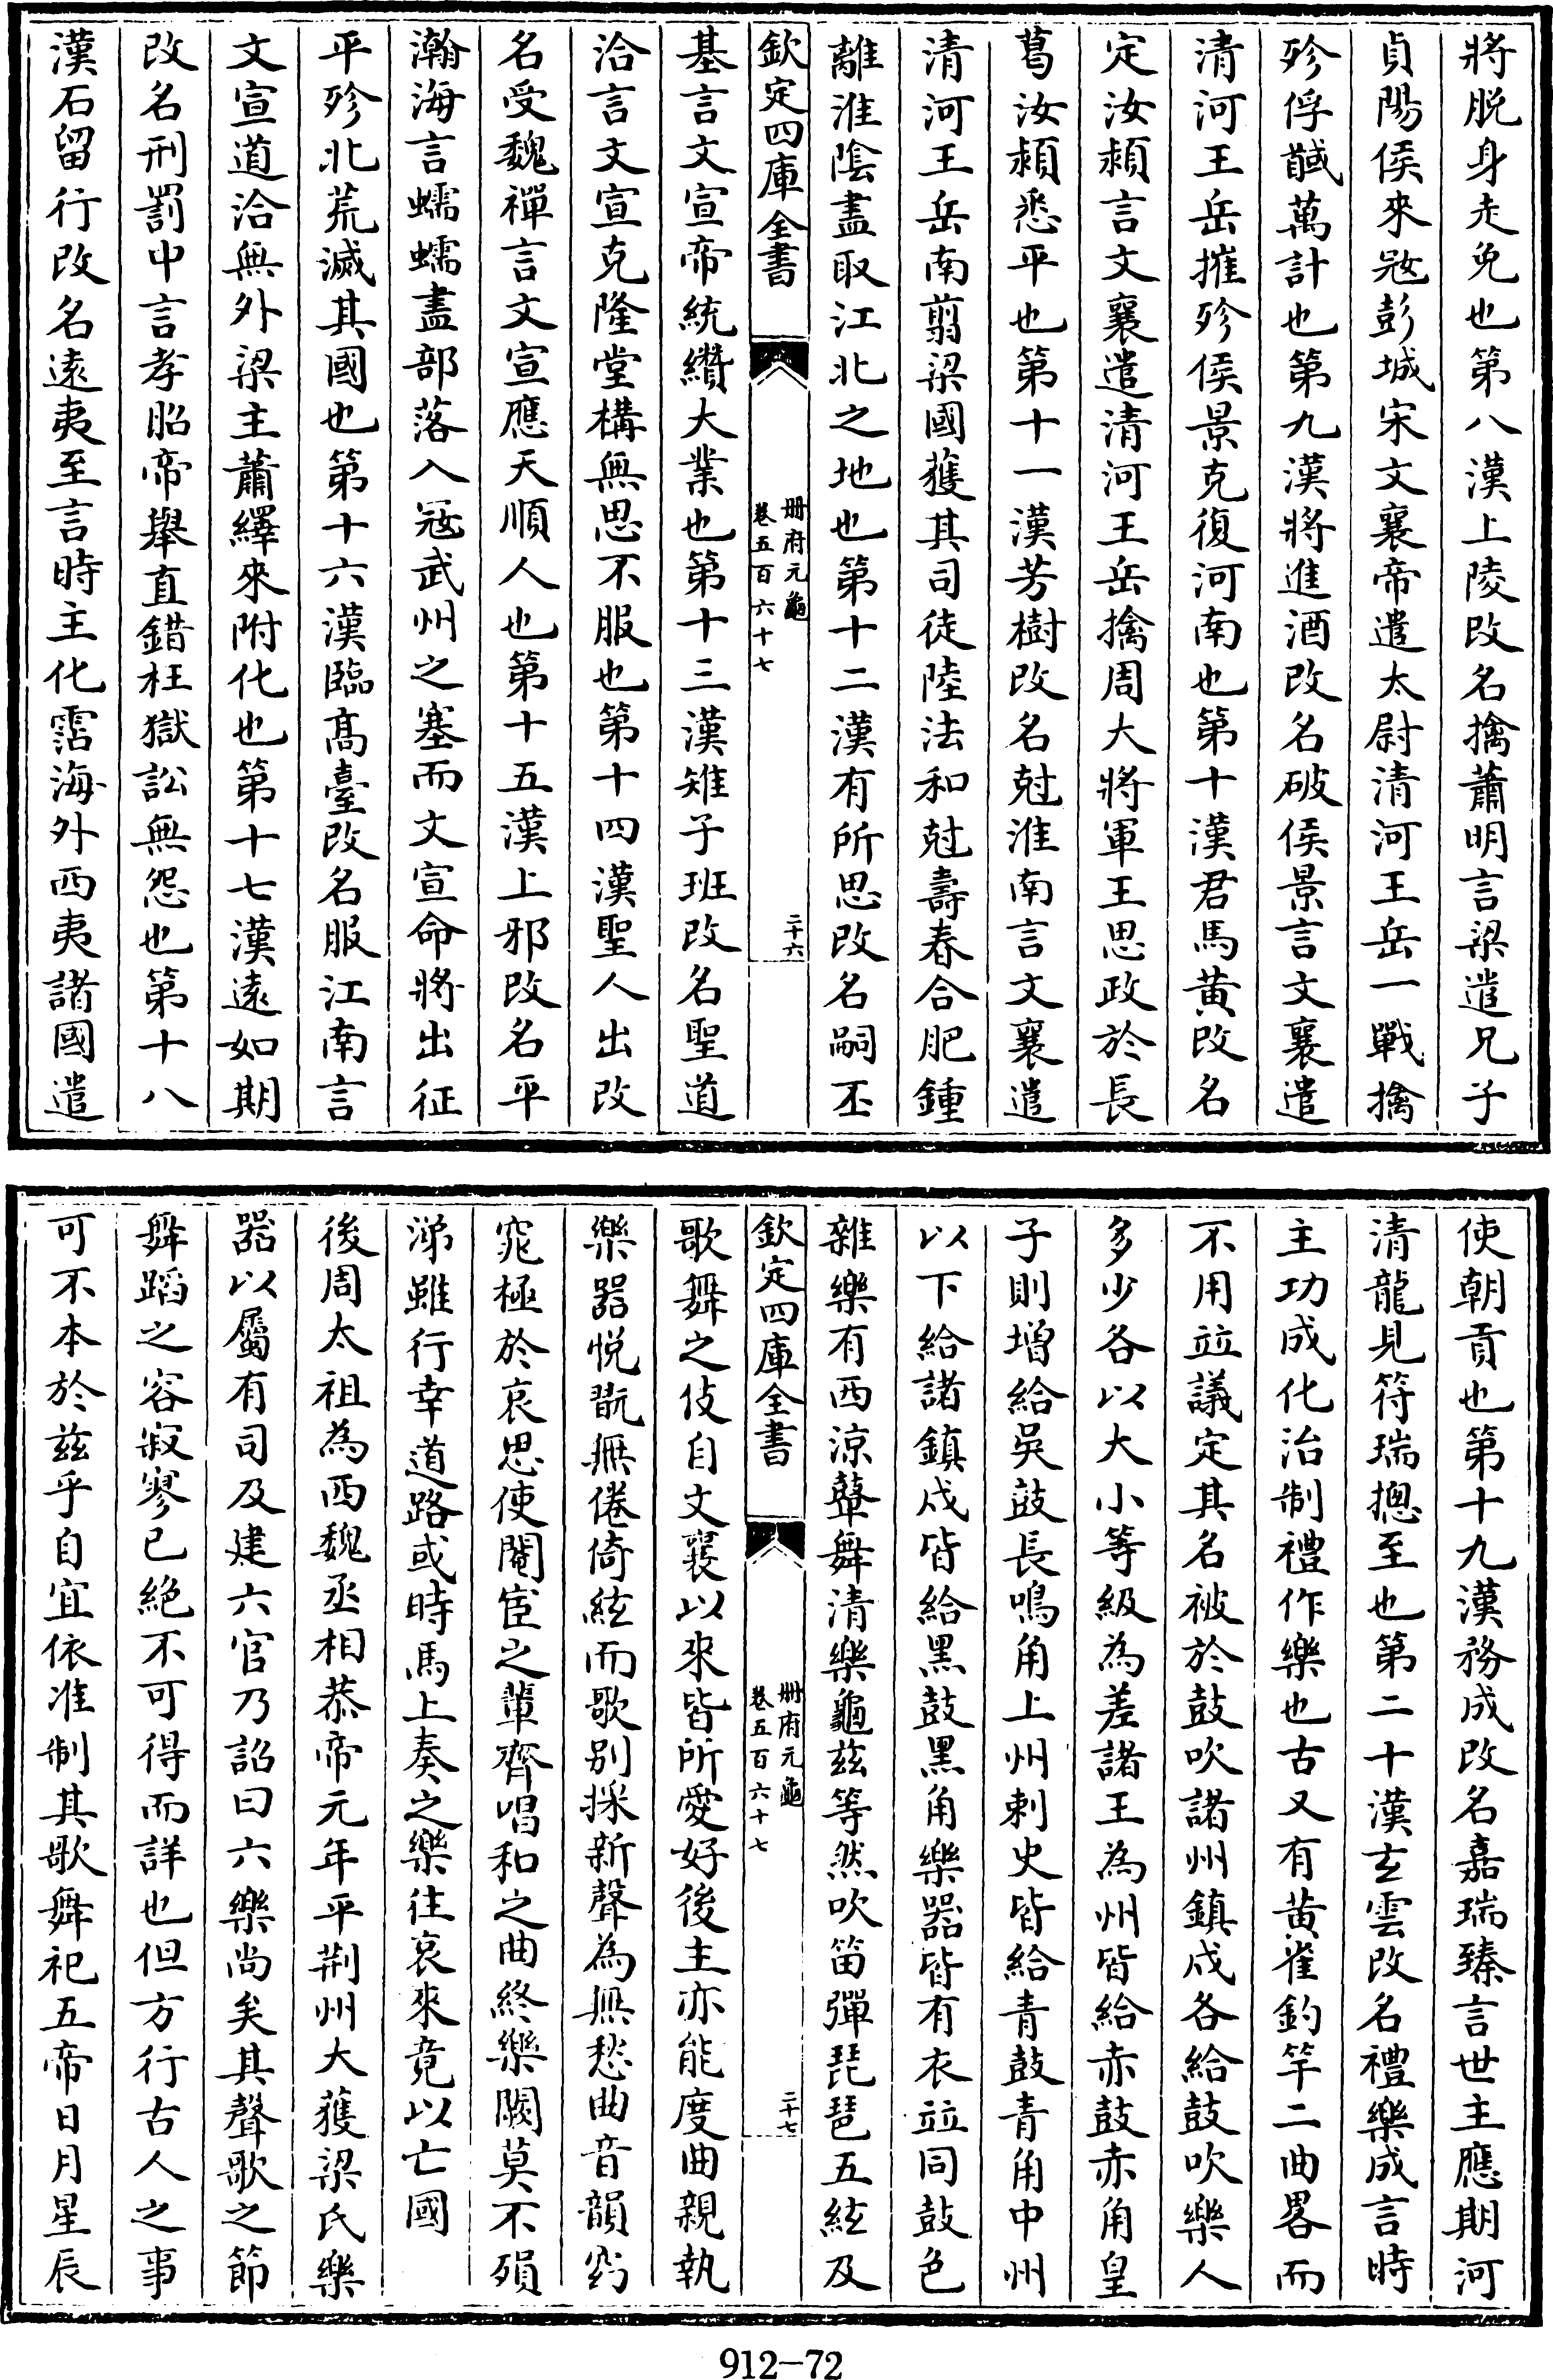 將脱身走免也第八漢上陵改名擒蕭明言梁遣兄子
貞陽侯來冦彭城宋文襄帝遣太尉清河王岳一戰擒
殄俘馘萬計也第九漢將進酒改名破侯景言文襄遣
清河王岳摧殄侯景克復河南也第十漢君馬黄改名
定汝潁言文襄遣清河王岳擒周大將軍王思政於長
葛汝潁悉平也第十一漢芳樹改名尅淮南言文襄遣
清河王岳南翦梁國獲其司徒陸法和尅壽春合肥鍾
離淮隂盡取江北之地也第十二漢有所思改名嗣丕
欽定四庫全書
册府元龜
卷五百六十七
二十六
基言文宣帝統纘大業也第十三漢雉子班改名聖道
洽言文宣克隆堂構無思不服也第十四漢聖人出改
名受魏禪言文宣應天順人也第十五漢上邪改名平
瀚海言蠕蠕盡部落入冦武州之塞而文宣命將出征
平殄北荒滅其國也第十六漢臨髙臺改名服江南言
文宣道洽無外梁主蕭繹來附化也第十七漢遠如期
改名刑罰中言孝昭帝舉直錯枉獄訟無怨也第十八
漢石留行改名遠夷至言時主化霑海外西夷諸國遣
使朝貢也第十九漢務成改名嘉瑞臻言世主應期河
清龍見符瑞摠至也第二十漢玄雲改名禮樂成言時
主功成化治制禮作樂也古又有黄雀釣竿二曲畧而
不用竝議定其名被於鼓吹諸州鎮戍各給鼓吹樂人
多少各以大小等級為差諸王為州皆給赤鼓赤角皇
子則增給吳鼓長鳴角上州刺史皆給青鼓青角中州
以下給諸鎮戍皆給黑鼓黑角樂器皆有衣竝同鼓色
雜樂有西涼鼙舞清樂龜兹等然吹笛彈琵琶五絃及
欽定四庫全書
册府元龜
卷五百六十七
二十七
歌舞之伎自文襄以來皆所愛好後主亦能度曲親執
樂器悦翫無倦倚絃而歌别採新聲為無愁曲音韻窈
窕極於哀思使閹宦之輩齊唱和之曲終樂闋莫不殞
涕雖行幸道路或時馬上奏之樂往哀來竟以亡國
後周太祖為西魏丞相恭帝元年平荆州大獲梁氏樂
器以屬有司及建六官乃詔曰六樂尚矣其聲歌之節
舞蹈之容寂寥已絶不可得而詳也但方行古人之事
可不本於兹乎自宜依准制其歌舞祀五帝日月星辰
912-72